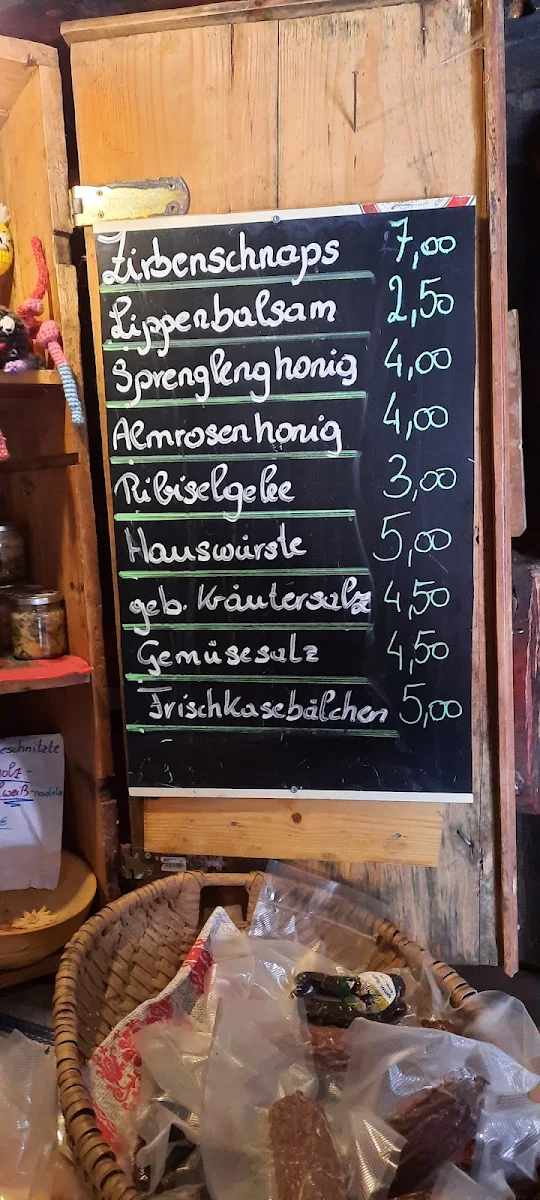 Zirbenschnaps 7,00
Lippenbalsam 2,50
Sprenglenghonig 4,00
Almrosenhonig 4,00
Ribiselgelee 3,00
Hauswürste 5,00
geb. Kräutersalz 4,50
Gemüsesalz 4,50
Frischkasebälchen 5,00
eschnitzte
olz-
weiß-nadeln
€